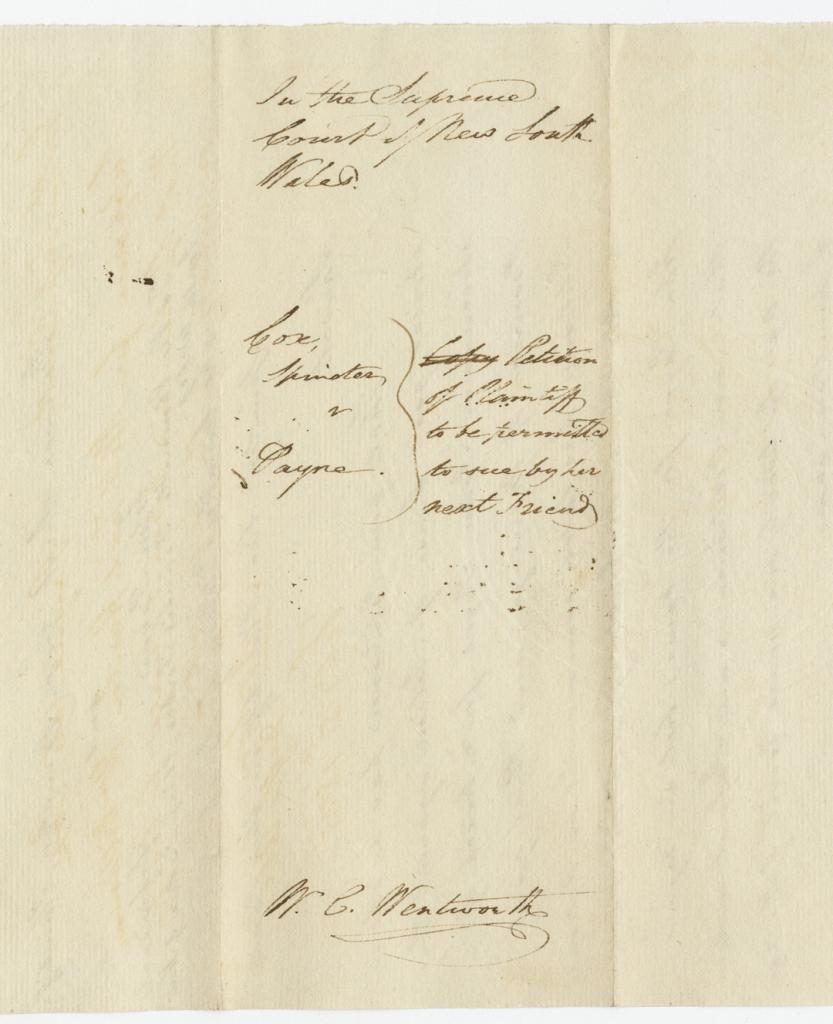 In the Supreme
Court of New South
Wales.
Cox,
Spinster
v
Payne.
Copy Petition
of Plaintiff
to be permitted
to sue by her
next Friend
W. C. Wentworth